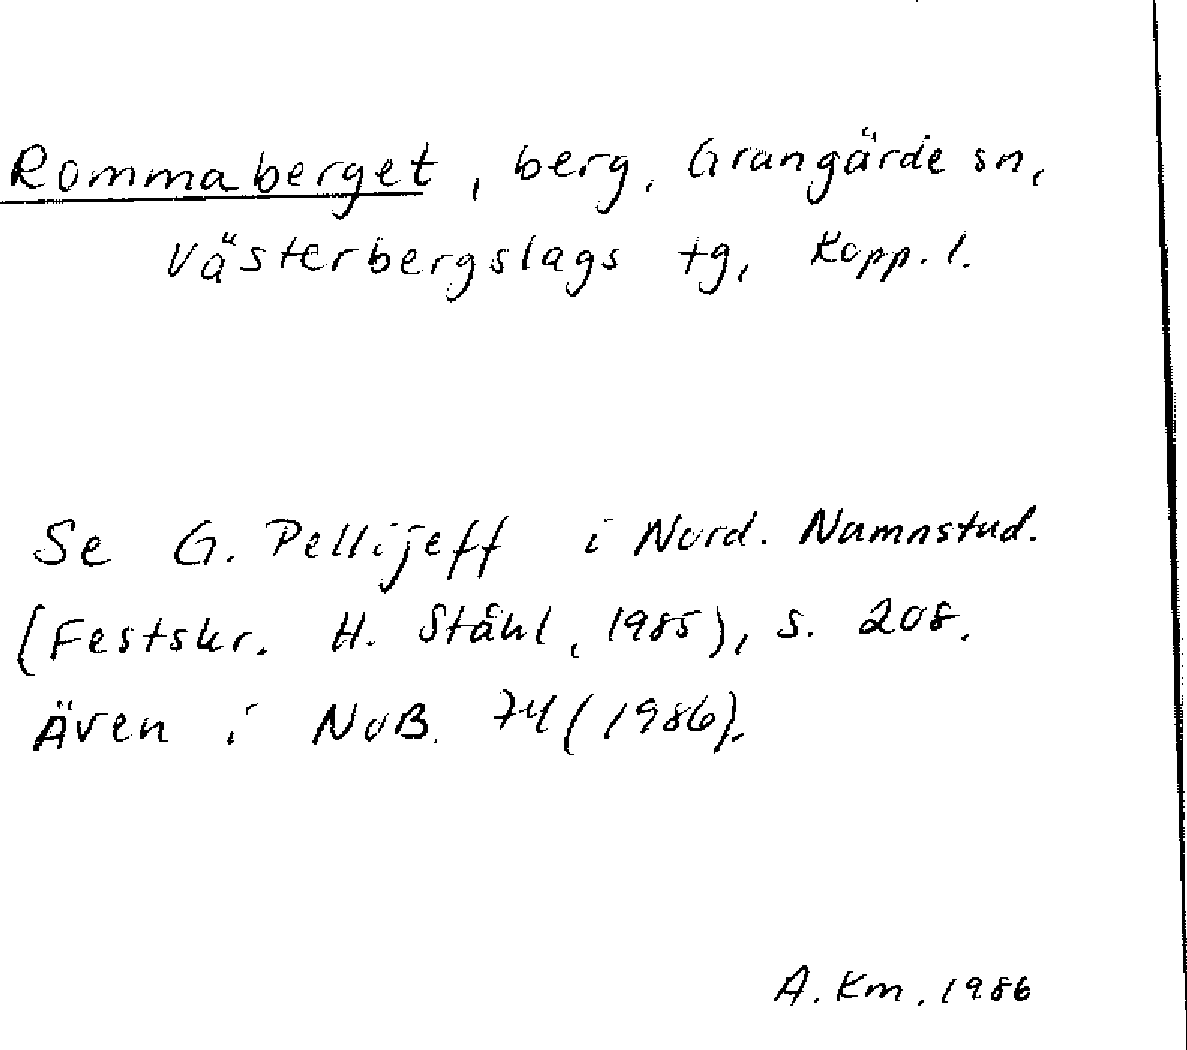 Rommaberget, berg, Grangärde sn,
Västerbergslags tg, Kopp. l.
Se G. Pellijeff i Nord. Namnstud.
(Festskr. H. Ståhl, 1985), s. 208.
Även i NoB. 74 (1986).
A. Km. 1986